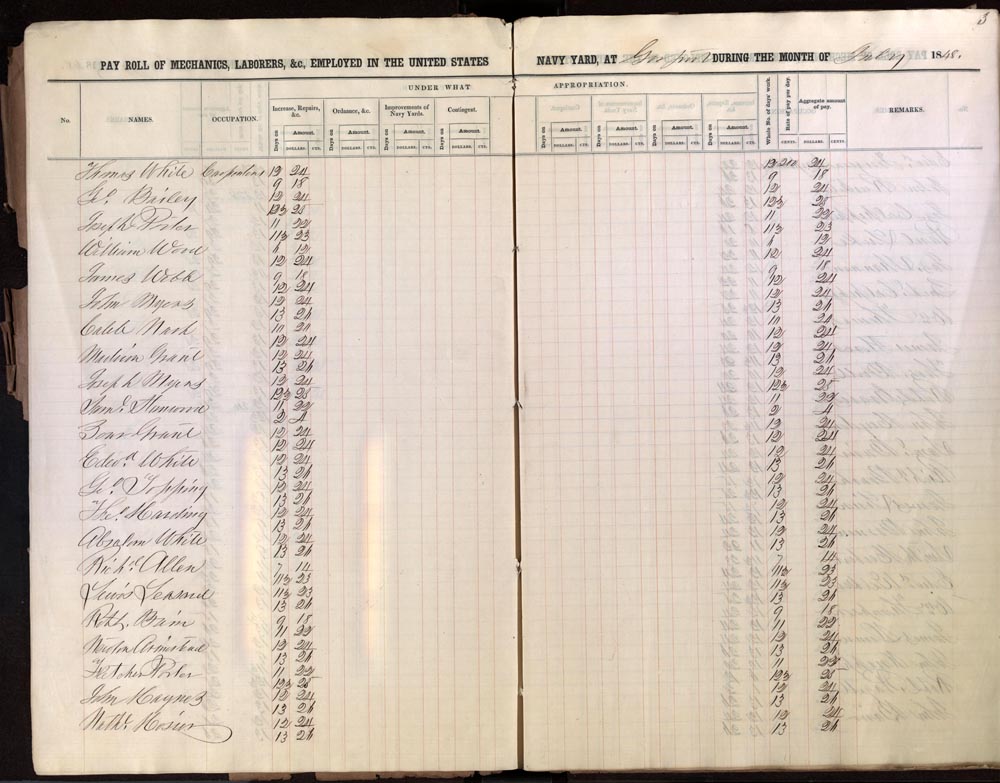 3
PAY ROLL OF MECHANICS, LABORERS, &c, EMPLOYED IN THE UNITED STATES NAVY YARD, AT Gosport DURING THE MONTH OF July 1848.
UNDER WHAT APPROPRIATION.
No. NAMES. OCCUPATION. Increase, Repairs, &c. Ordnance, &c. Improvements of Navy Yards. Contingent. Whole No. of days' work. Rate of pay per day. Aggregate amount of pay. REMARKS.
Days on Amount. Days on Amount. Days on Amount. Days on Amount. Days on Amount. Days on Amount. Days on Amount. Days on Amount.
DOLLARS. CTS. DOLLARS. CTS. DOLLARS. CTS. DOLLARS. CTS. DOLLARS. CTS. DOLLARS. CTS. DOLLARS. CTS. DOLLARS. CTS. CENTS. DOLLARS. CENTS.
Thomas White Carpenters 12 24 12 200 24
9 18 9 18
Geo. Bailey 12 24 12 24
25
Joseph Porter 11 22 11 22
23 23
William Wood 6 12 6 12
12 24 12 24
James Webb 9 18 9 18
12 24 12 24
John Myers 12 24 12 24
13 26 13 26
Caleb Nash 10 20 10 20
12 24 12 24
Madison Grant 12 24 12 24
13 26 13 26
Joseph Myers 12 24 12 24
25 25
Saml. 11 22 11 22
2 4 2 4
Grant 12 24 12 24
12 24 12 24
Edwd. White 12 24 12 24
13 26 13 26
Geo. Topping 12 24 12 24
13 26 13 26
Thos. Harding 12 24 12 24
13 26 13 26
Absalom White 12 24 12 24
13 26 13 26
Richd. Allen 7 14 7 14
23 23
23 23
13 26 13 26
Robt. Bain 9 18 9 18
11 22 11 22
Armistead 12 24 12 24
13 26 13 26
Fletcher Porter 11 22 11 22
25 25
John Haynes 12 24 12 24
13 26 13 26
Nathl. Hosier 12 24 12 24
13 26 13 26